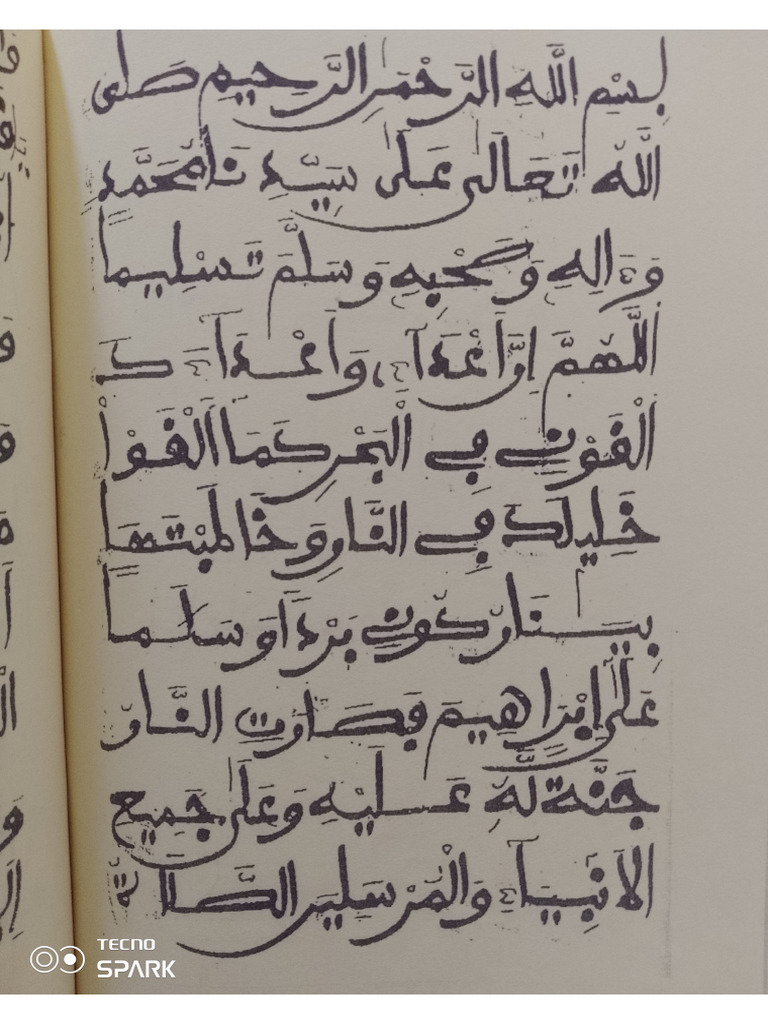 بِسْمِ اللَّهِ الرَّحْمَنِ الرَّحِيمِ صَلَّى
اللَّهُ تَعَالَى عَلَى سَيِّدِنَا مُحَمَّدٍ
وَءَالِهِ وَصَحْبِهِ وَسَلَّمَ تَسْلِيمًا
اللَّهُمَّ إِنَّ أَعْدَآءِ، وَأَعْدَآءَكَ
أَلْقَوْنِي فِي الْبَحْرِ كَمَا أَلْقَوْا
خَلِيلَكَ فِي النَّارِ وَخَاطَبْتَهَا
بِيَا نَارُ كُونِي بَرْدًا وَسَلَامًا
عَلَى إِبْرَاهِيمَ فَصَارَتِ النَّارُ
جَنَّةً لَهُ عَلَيْهِ وَعَلَى جَمِيعِ
الْأَنْبِيَآءِ وَالْمُرْسَلِينَ الصَّلَاةُ
TECNO
SPARK